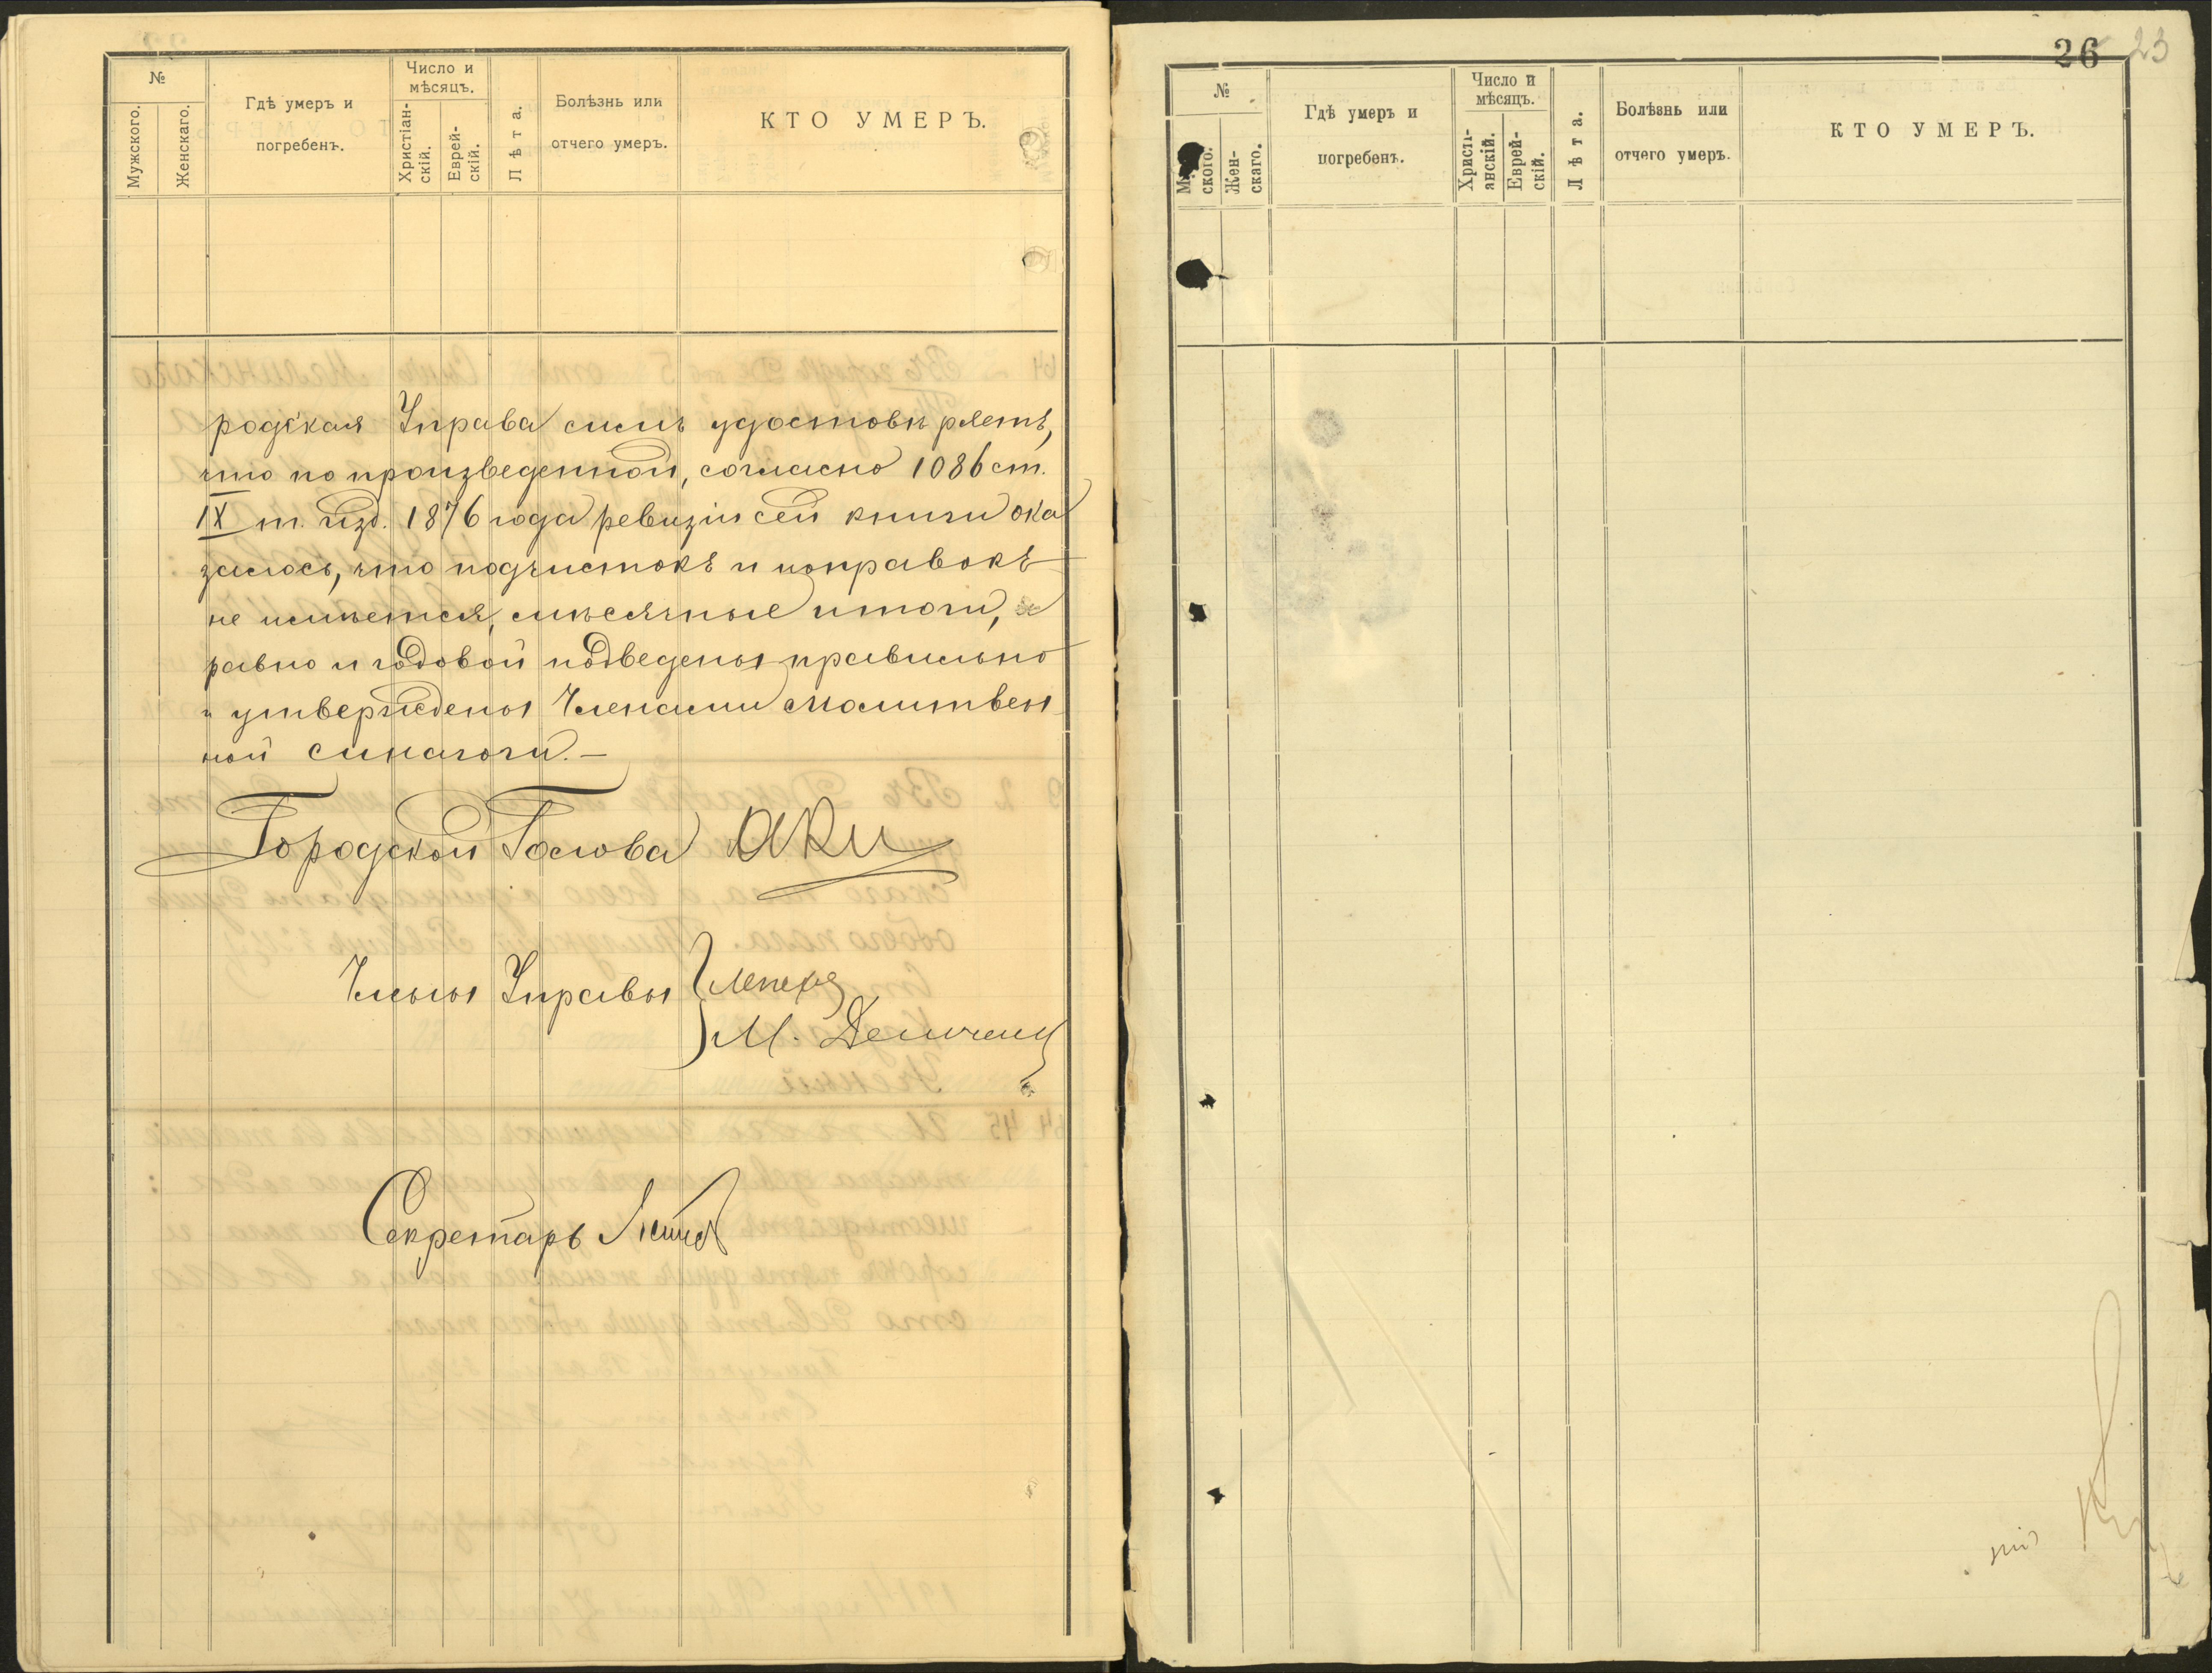 №
Мужского.
Женскаго.
Гдѣ умеръ и
погребенъ.
Число и
мѣсяцъ.
Христіан-
скій.
Еврей-
скій.
Лѣта.
Болѣзнь или
отчего умеръ.
КТО УМЕРЪ.
родская Управа симъ удостовѣряетъ,
что по произведенной, согласно 1086 ст.
IX т. изд. 1876 года ревизіи сей книги ока
залось, что подчистокъ и поправокъ
не имѣется, мѣсячные итоги, а
равно и годовой подведены правильно
и утверждены Членами молитвен
ной синагоги.—
Городской Голова
Члены Управы
М.
Секретарь
26 23
№
Муж-
ского.
Жен-
скаго.
Гдѣ умеръ и
погребенъ.
Число и
мѣсяцъ.
Христі-
анскій.
Еврей-
скій.
Лѣта.
Болѣзнь или
отчего умеръ.
КТО УМЕРЪ.